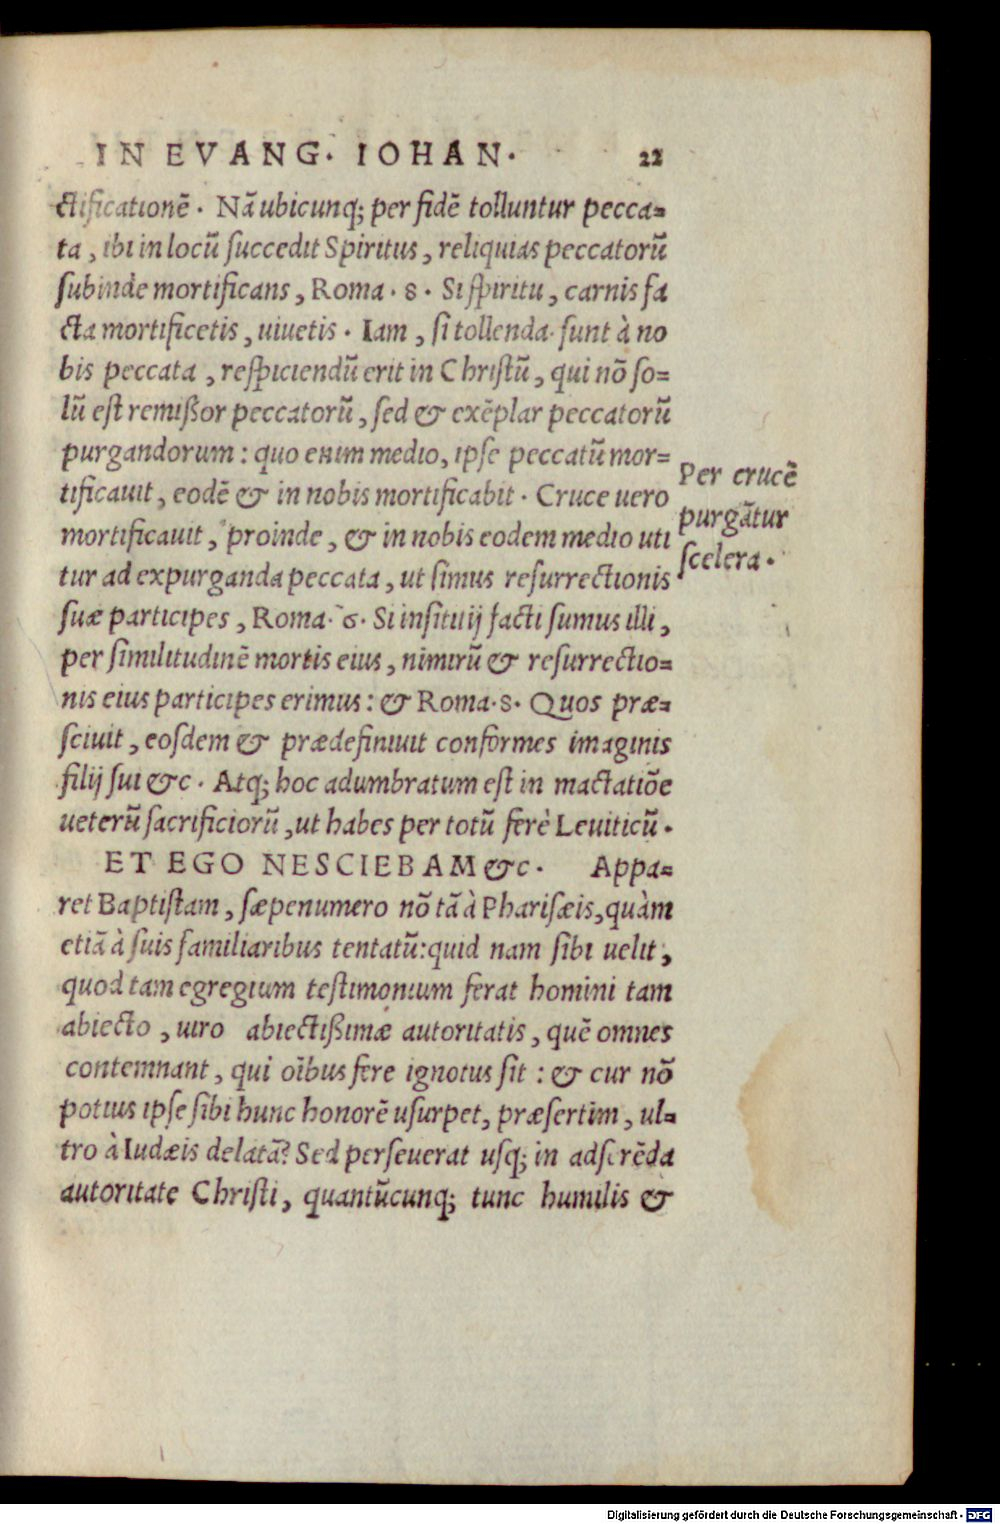 IN EVANG. IOHAN. 22
ctificationẽ. Nã ubicunq; per fidẽ tolluntur pecca=
ta, ibi in locũ succedit Spiritus, reliquias peccatorũ
subinde mortificans, Roma. 8. Si spiritu, carnis fa
cta mortificetis, uiuetis. Iam, si tollenda sunt à no
bis peccata, respiciendũ erit in Christũ, qui nõ so=
lũ est remißor peccatorũ, sed & exẽplar peccatorũ
purgandorum: quo enim medio, ipse peccatũ mor=
tificauit, eodẽ & in nobis mortificabit. Cruce uero
mortificauit, proinde, & in nobis eodem medio uti
tur ad expurganda peccata, ut simus resurrectionis
suæ participes, Roma. 6. Si insitiij facti sumus illi,
per similitudinẽ mortis eius, nimirũ & resurrectio=
nis eius participes erimus: & Roma. 8. Quos præ=
sciuit, eosdem & prædefiniuit conformes imaginis
filij sui &c. Atq; hoc adumbratum est in mactatiõe
ueterũ sacrificiorũ, ut habes per totũ ferè Leuiticũ.
ET EGO NESCIEBAM &c. Appa=
ret Baptistam, sæpenumero nõ tã à Pharisæis, quàm
etiã à suis familiaribus tentatũ: quid nam sibi uelit,
quod tam egregium testimonium ferat homini tam
abiecto, uiro abiectißimæ autoritatis, quẽ omnes
contemnant, qui oĩbus fere ignotus sit: & cur nõ
potius ipse sibi hunc honorẽ usurpet, præsertim, ul=
tro à Iudæis delatã? Sed perseuerat usq; in adserẽda
autoritate Christi, quantũcunq; tunc humilis &
Per crucẽ
purgãtur
scelera.
Digitalisierung gefördert durch die Deutsche Forschungsgemeinschaft - DFG